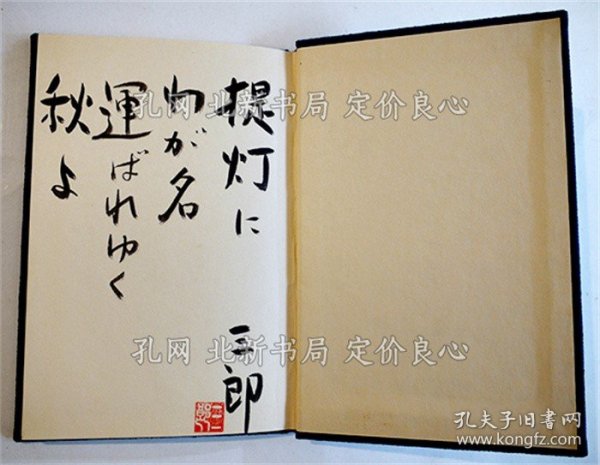 提灯に
わが名
運ばれゆく
秋よ
三郎
孔网 北新书局 定价良心
孔网 北新书局 定价良心
孔夫子旧书网
www.kongfz.com